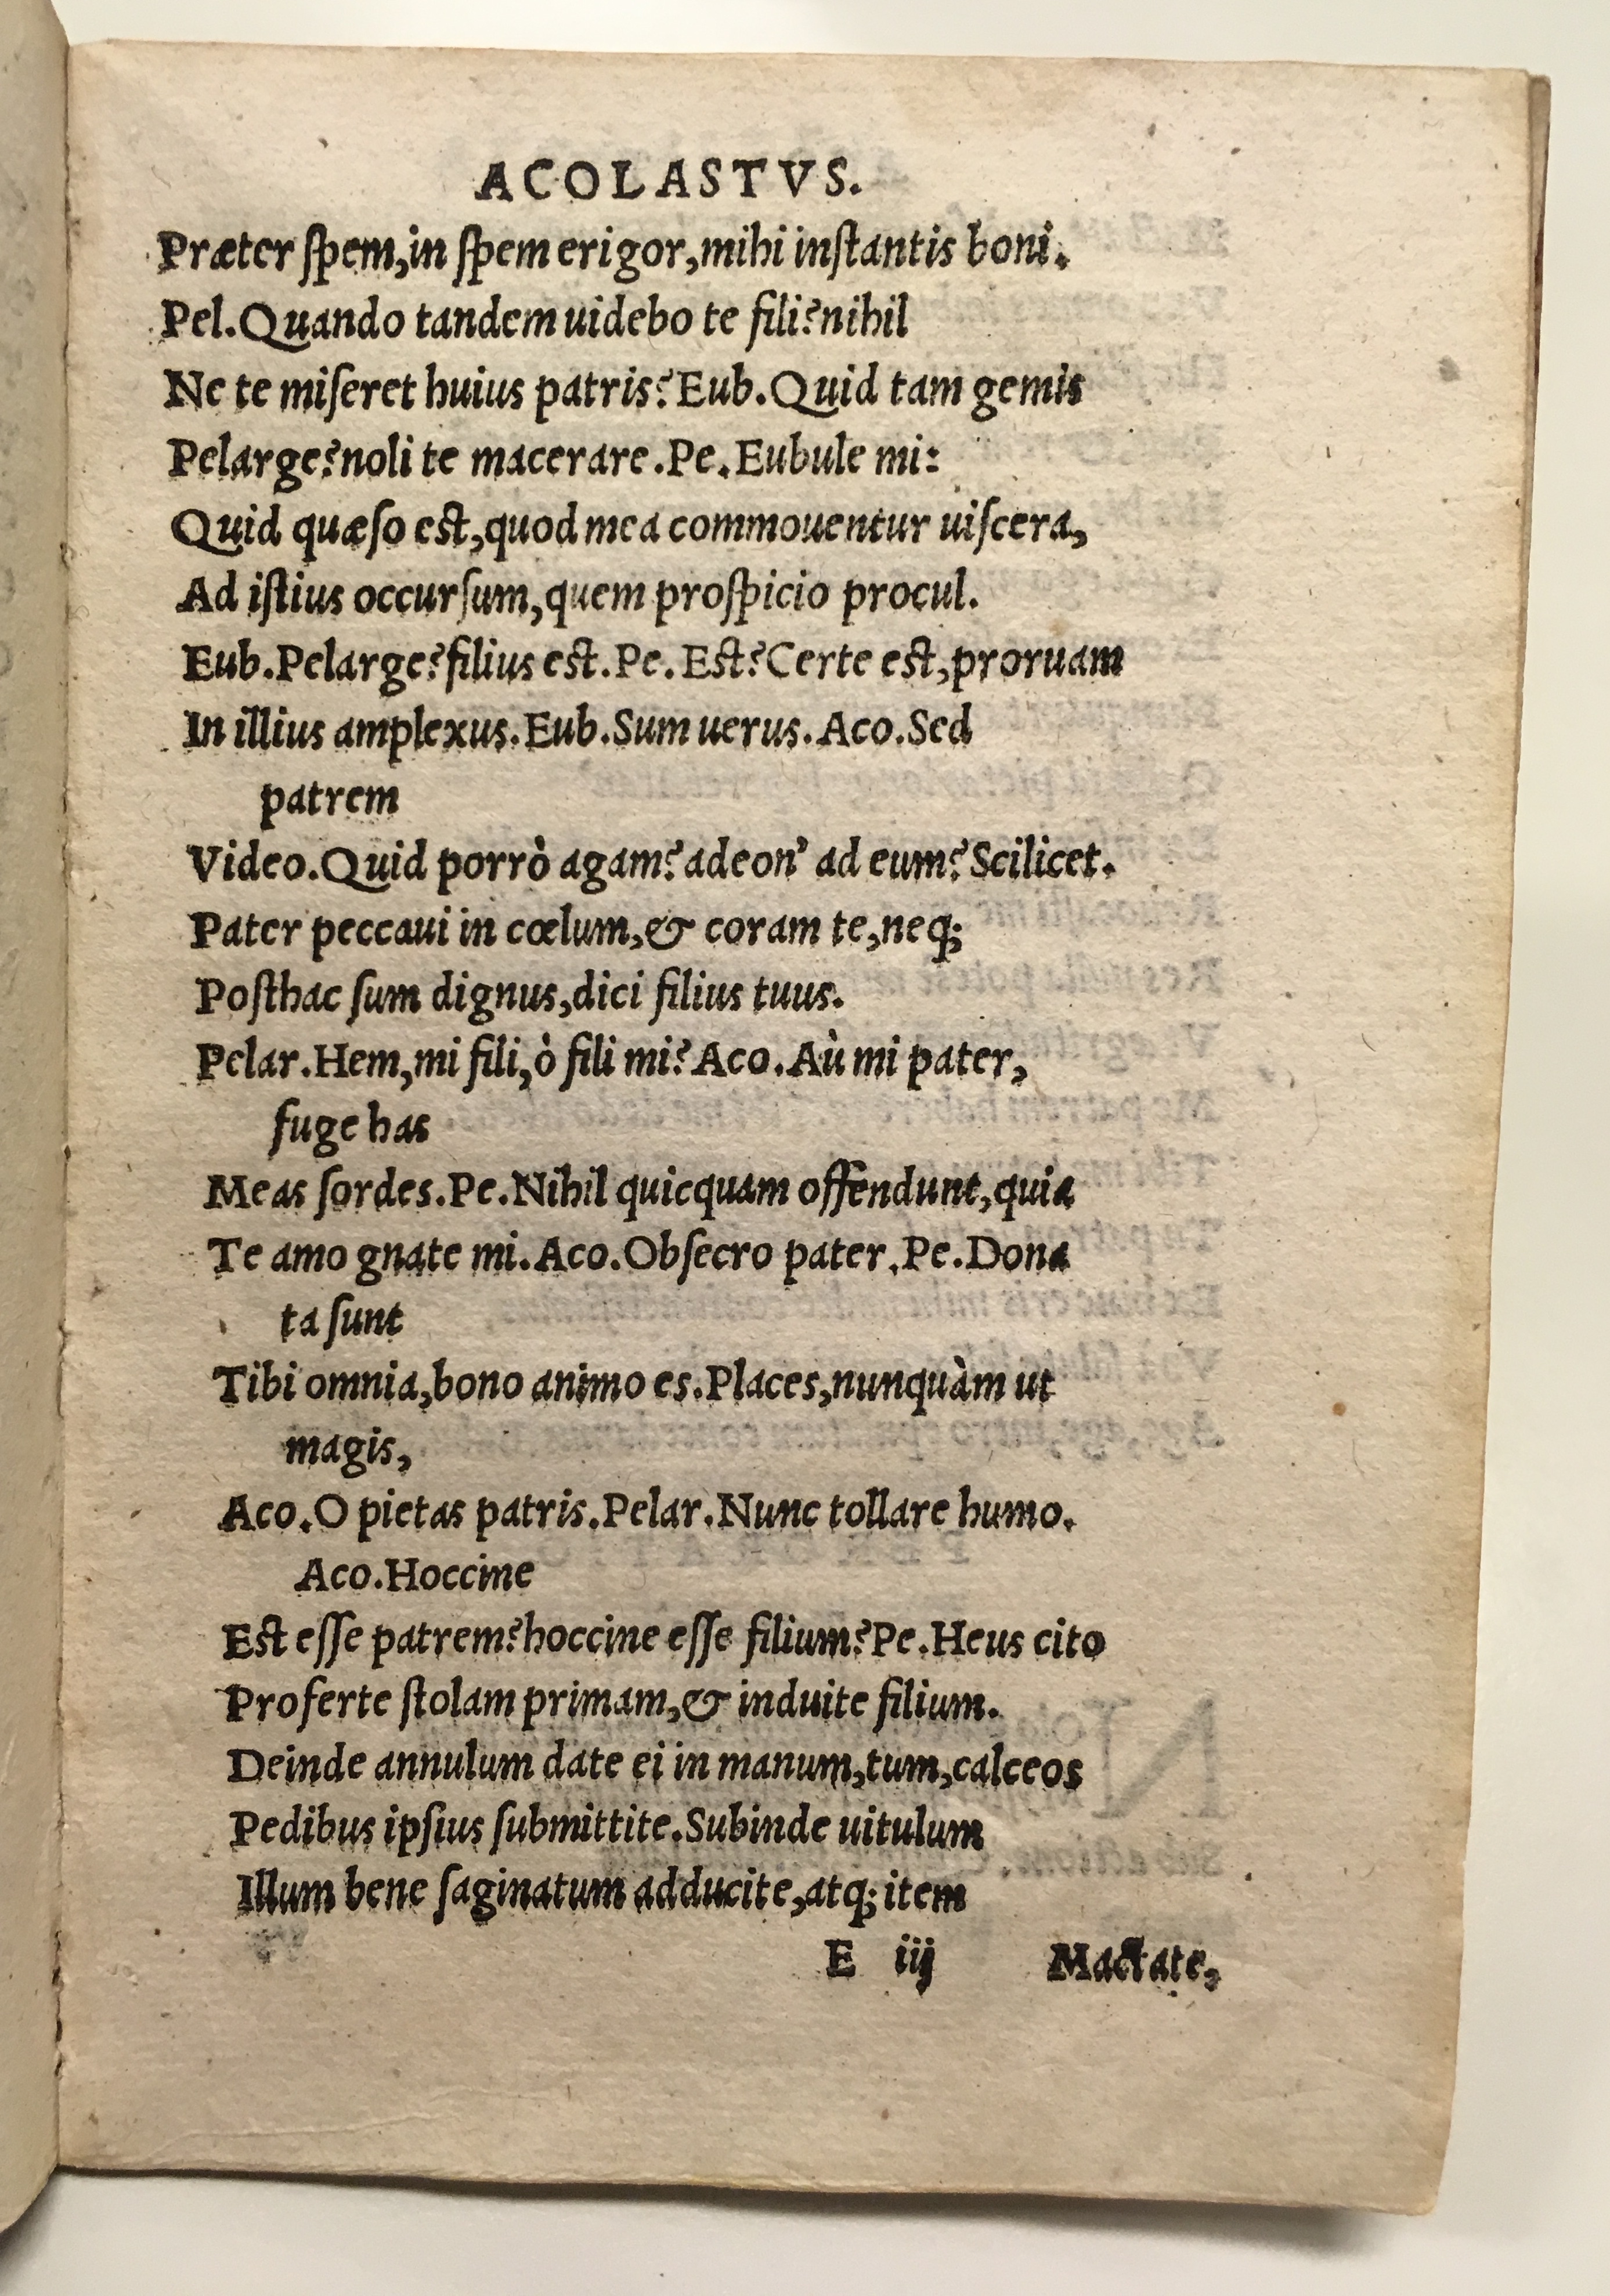 ACOLASTVS.
Præter ſpem,in ſpem erigor,mihi inſtantis boni.
Pel.Quando tandem uidebo te fili?nihil
Ne te miſeret huius patris?Eub.Quid tam gemis
Pelarge?noli te macerare.Pe.Eubule mi:
Quid quæſo est,quod mea commouentur uiſcera,
Ad iſtius occurſum,quem proſpicio procul.
Eub.Pelarge?filius est.Pe.Est?Certe est,proruam
In illius amplexus.Eub.Sum uerus.Aco.Sed
patrem
Video.Quid porrò agam?adeon' ad eum?Scilicet.
Pater peccaui in cœlum,& coram te,neq;
Poſthac ſum dignus,dici filius tuus.
Pelar.Hem,mi fili,ò fili mi?Aco.Aù mi pater,
fuge has
Meas ſordes.Pe.Nihil quicquam offendunt,quia
Te amo gnate mi.Aco.Obſecro pater.Pe.Dona
ta ſunt
Tibi omnia,bono animo es.Places,nunquàm ut
magis,
Aco.O pietas patris.Pelar.Nunc tollare humo.
Aco.Hoccine
Est eſſe patrem?hoccine eſſe filium?Pe.Heus cito
Proferte ſtolam primam,& induite filium.
Deinde annulum date ei in manum,tum,calceos
Pedibus ipſius ſubmittite.Subinde uitulum
Illum bene ſaginatum adducite,atq;item
E iij Mactate,